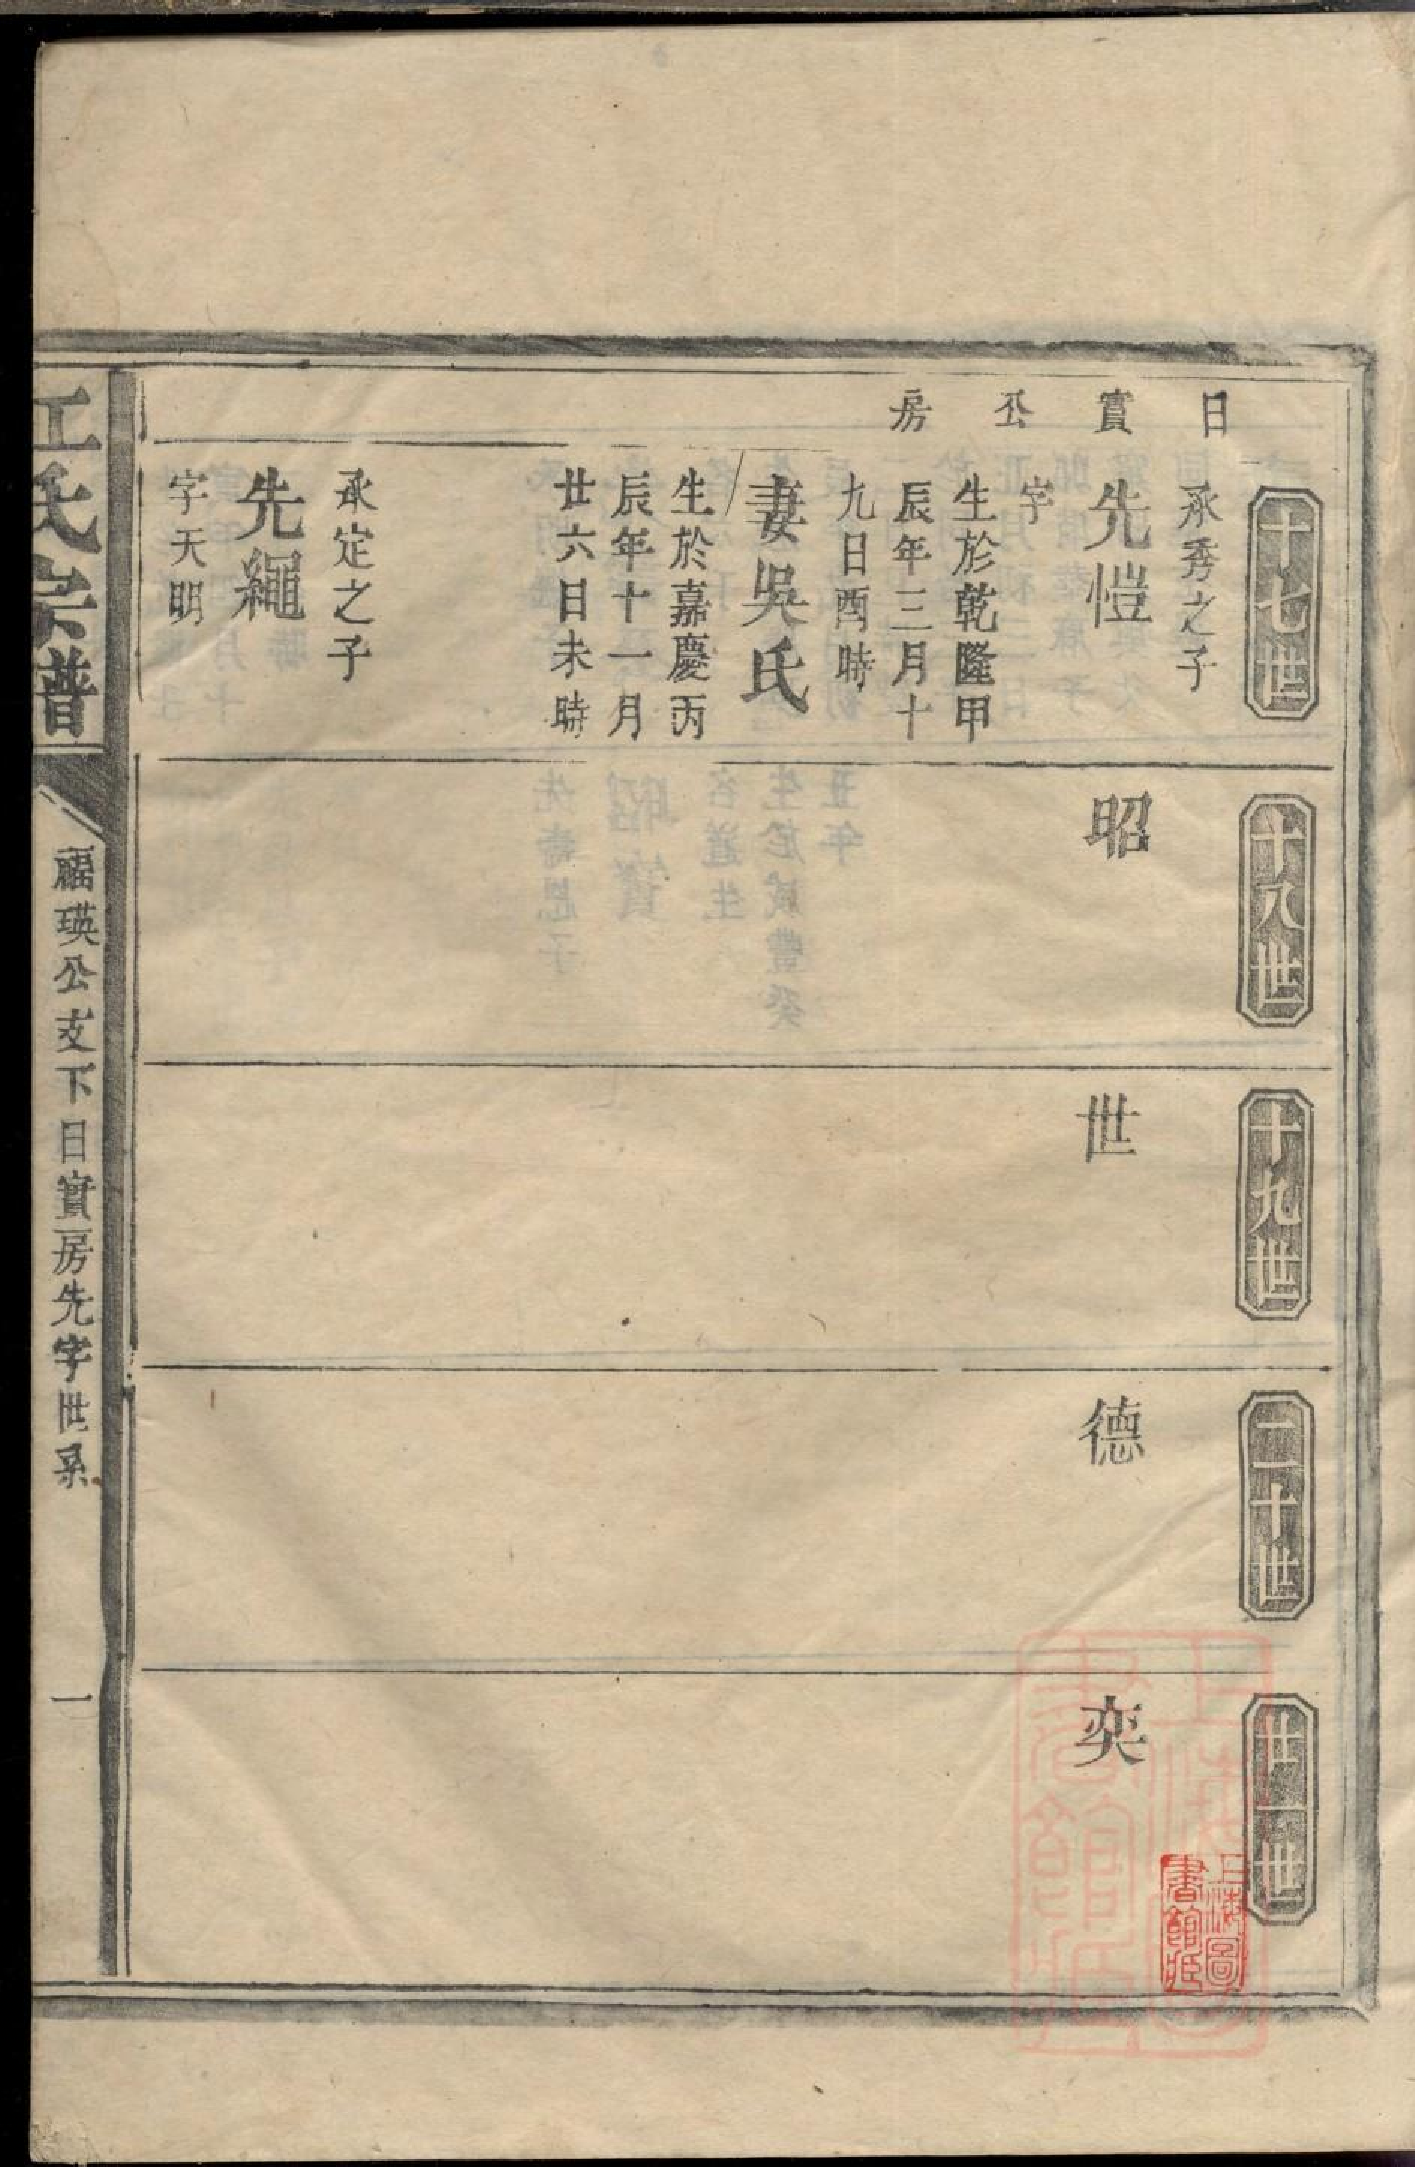 日實公房
十七世
永秀之子
先愷
字
生於乾隆甲
辰年三月十
九日酉時
妻吳氏
生於嘉慶丙
辰年十一月
廿六日未時
永定之子
先繩
字天明
十八世
昭
十九世
世
二十世
德
廿一世
奕
江氏宗譜
福瑛公支下日實房先字世系
一
上海圖書館藏